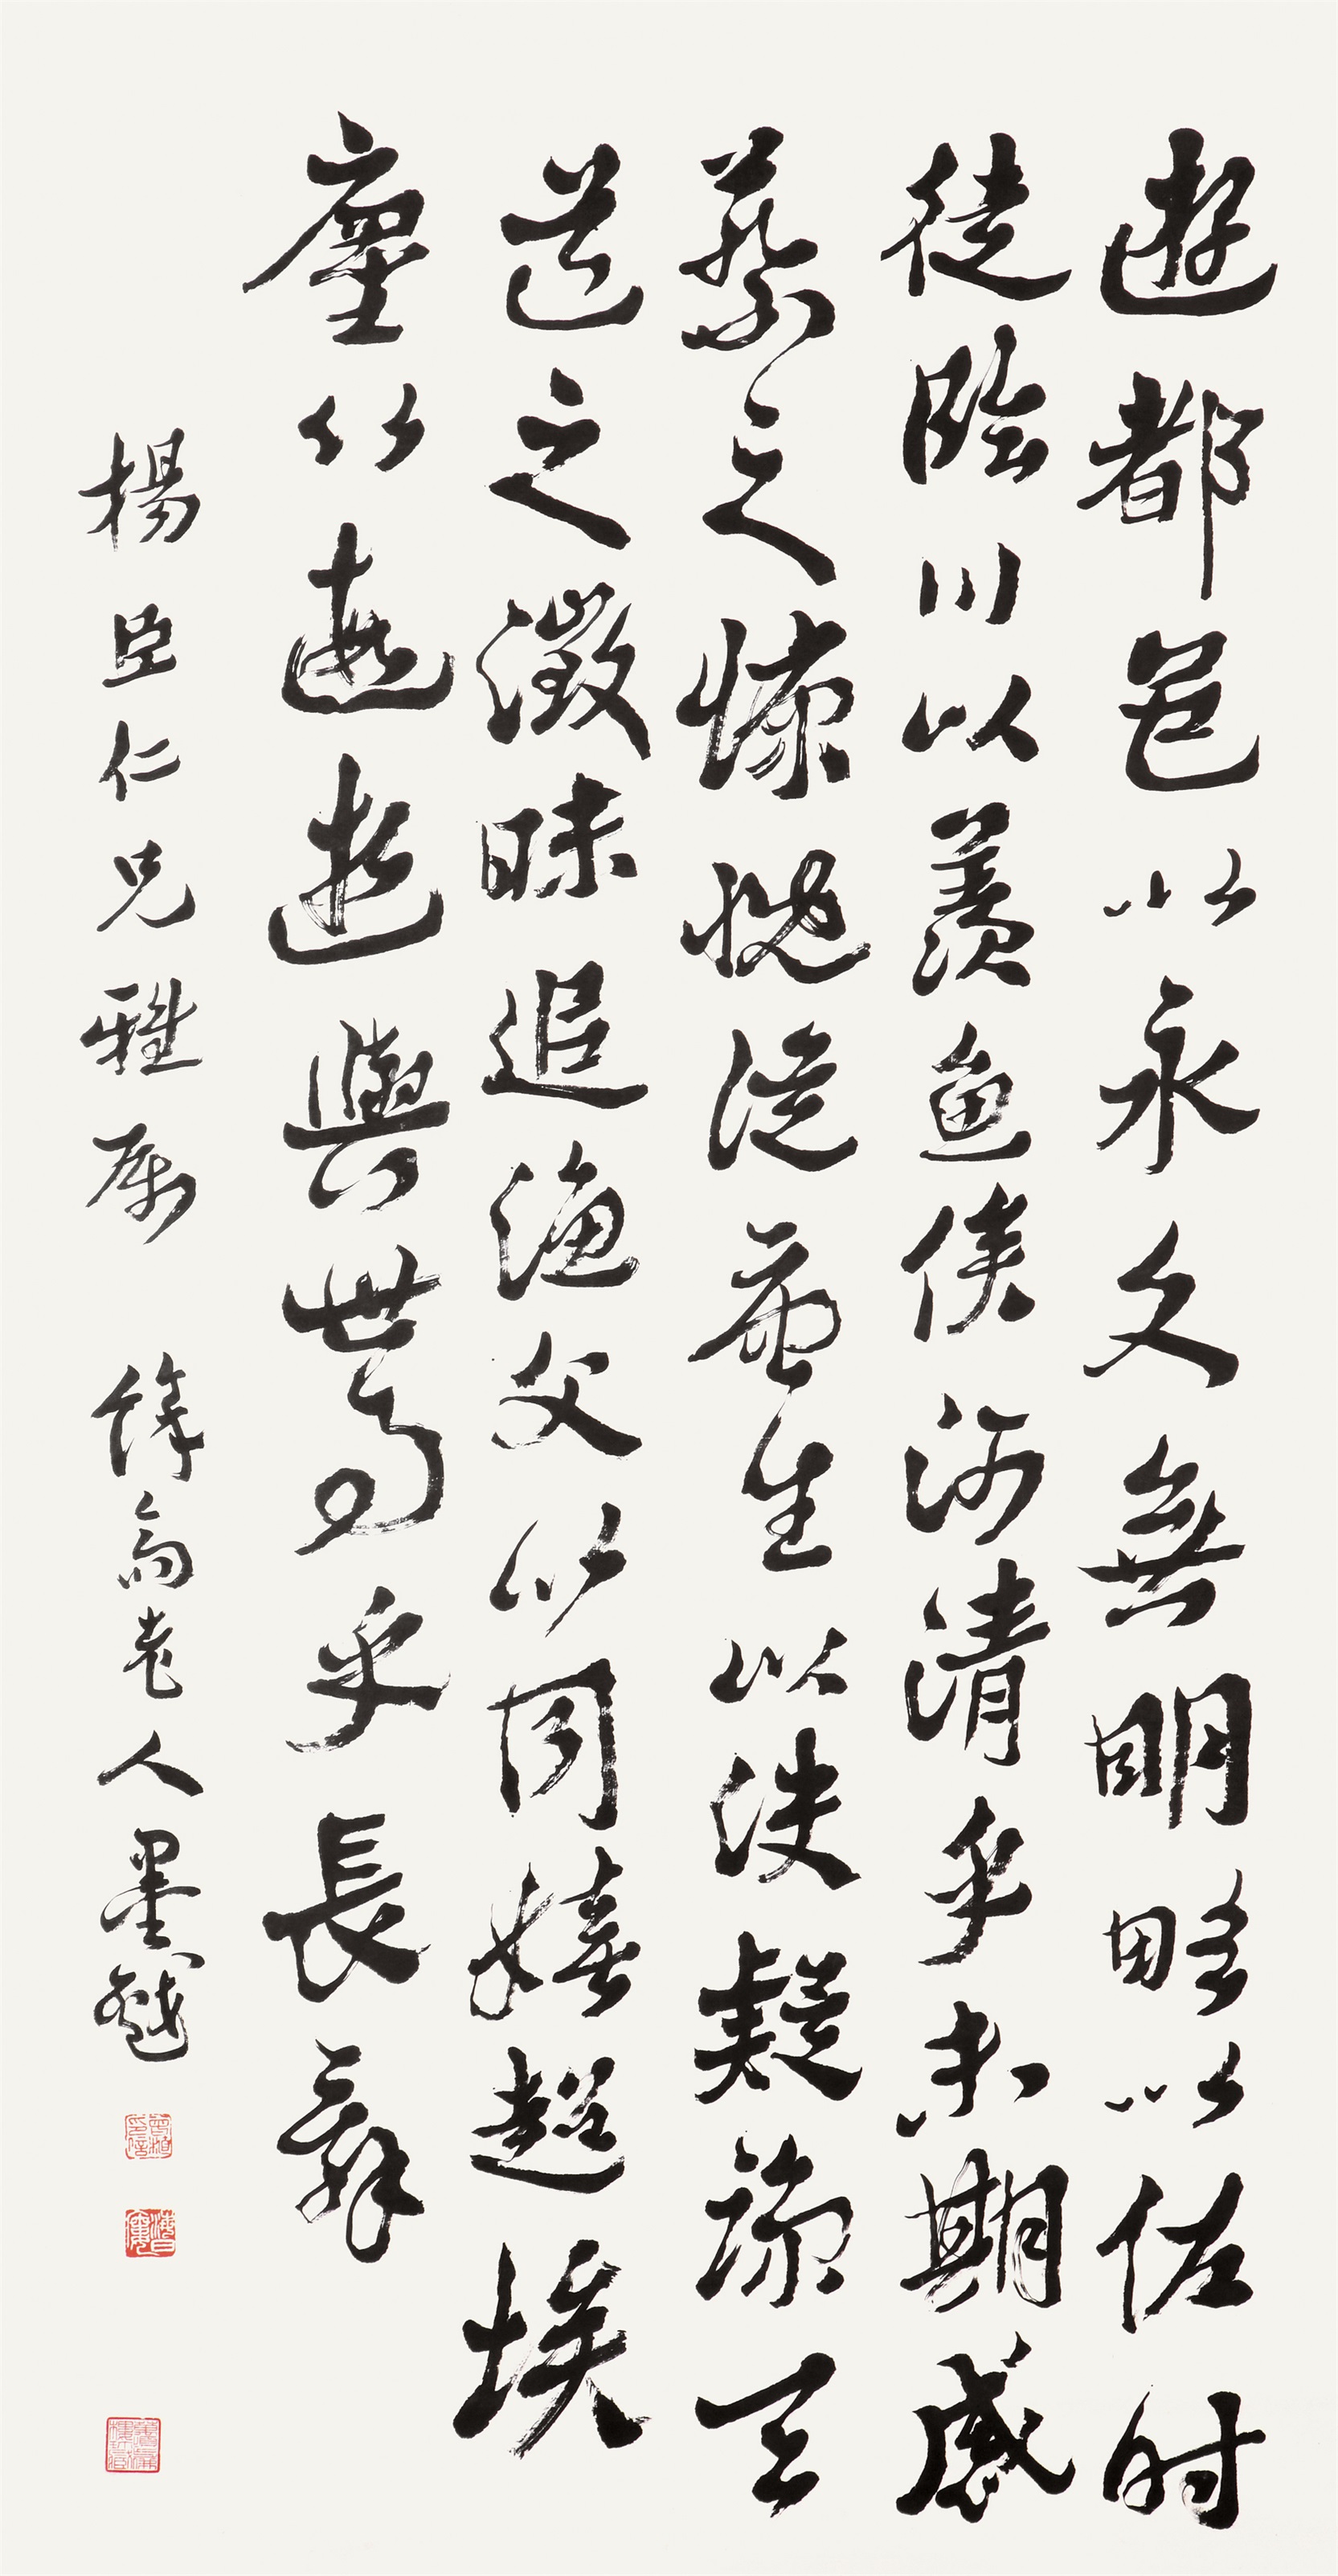 遊都邑以永久無明略以佐时
徒臨川以羡魚俟河清乎未期感
蔡子之慷慨從唐生以決疑諒天
道之微昧追漁父以同嬉超埃
塵以遐逝與世事乎長辞
楊臣仁兄雅属 餘齋老人墨戲